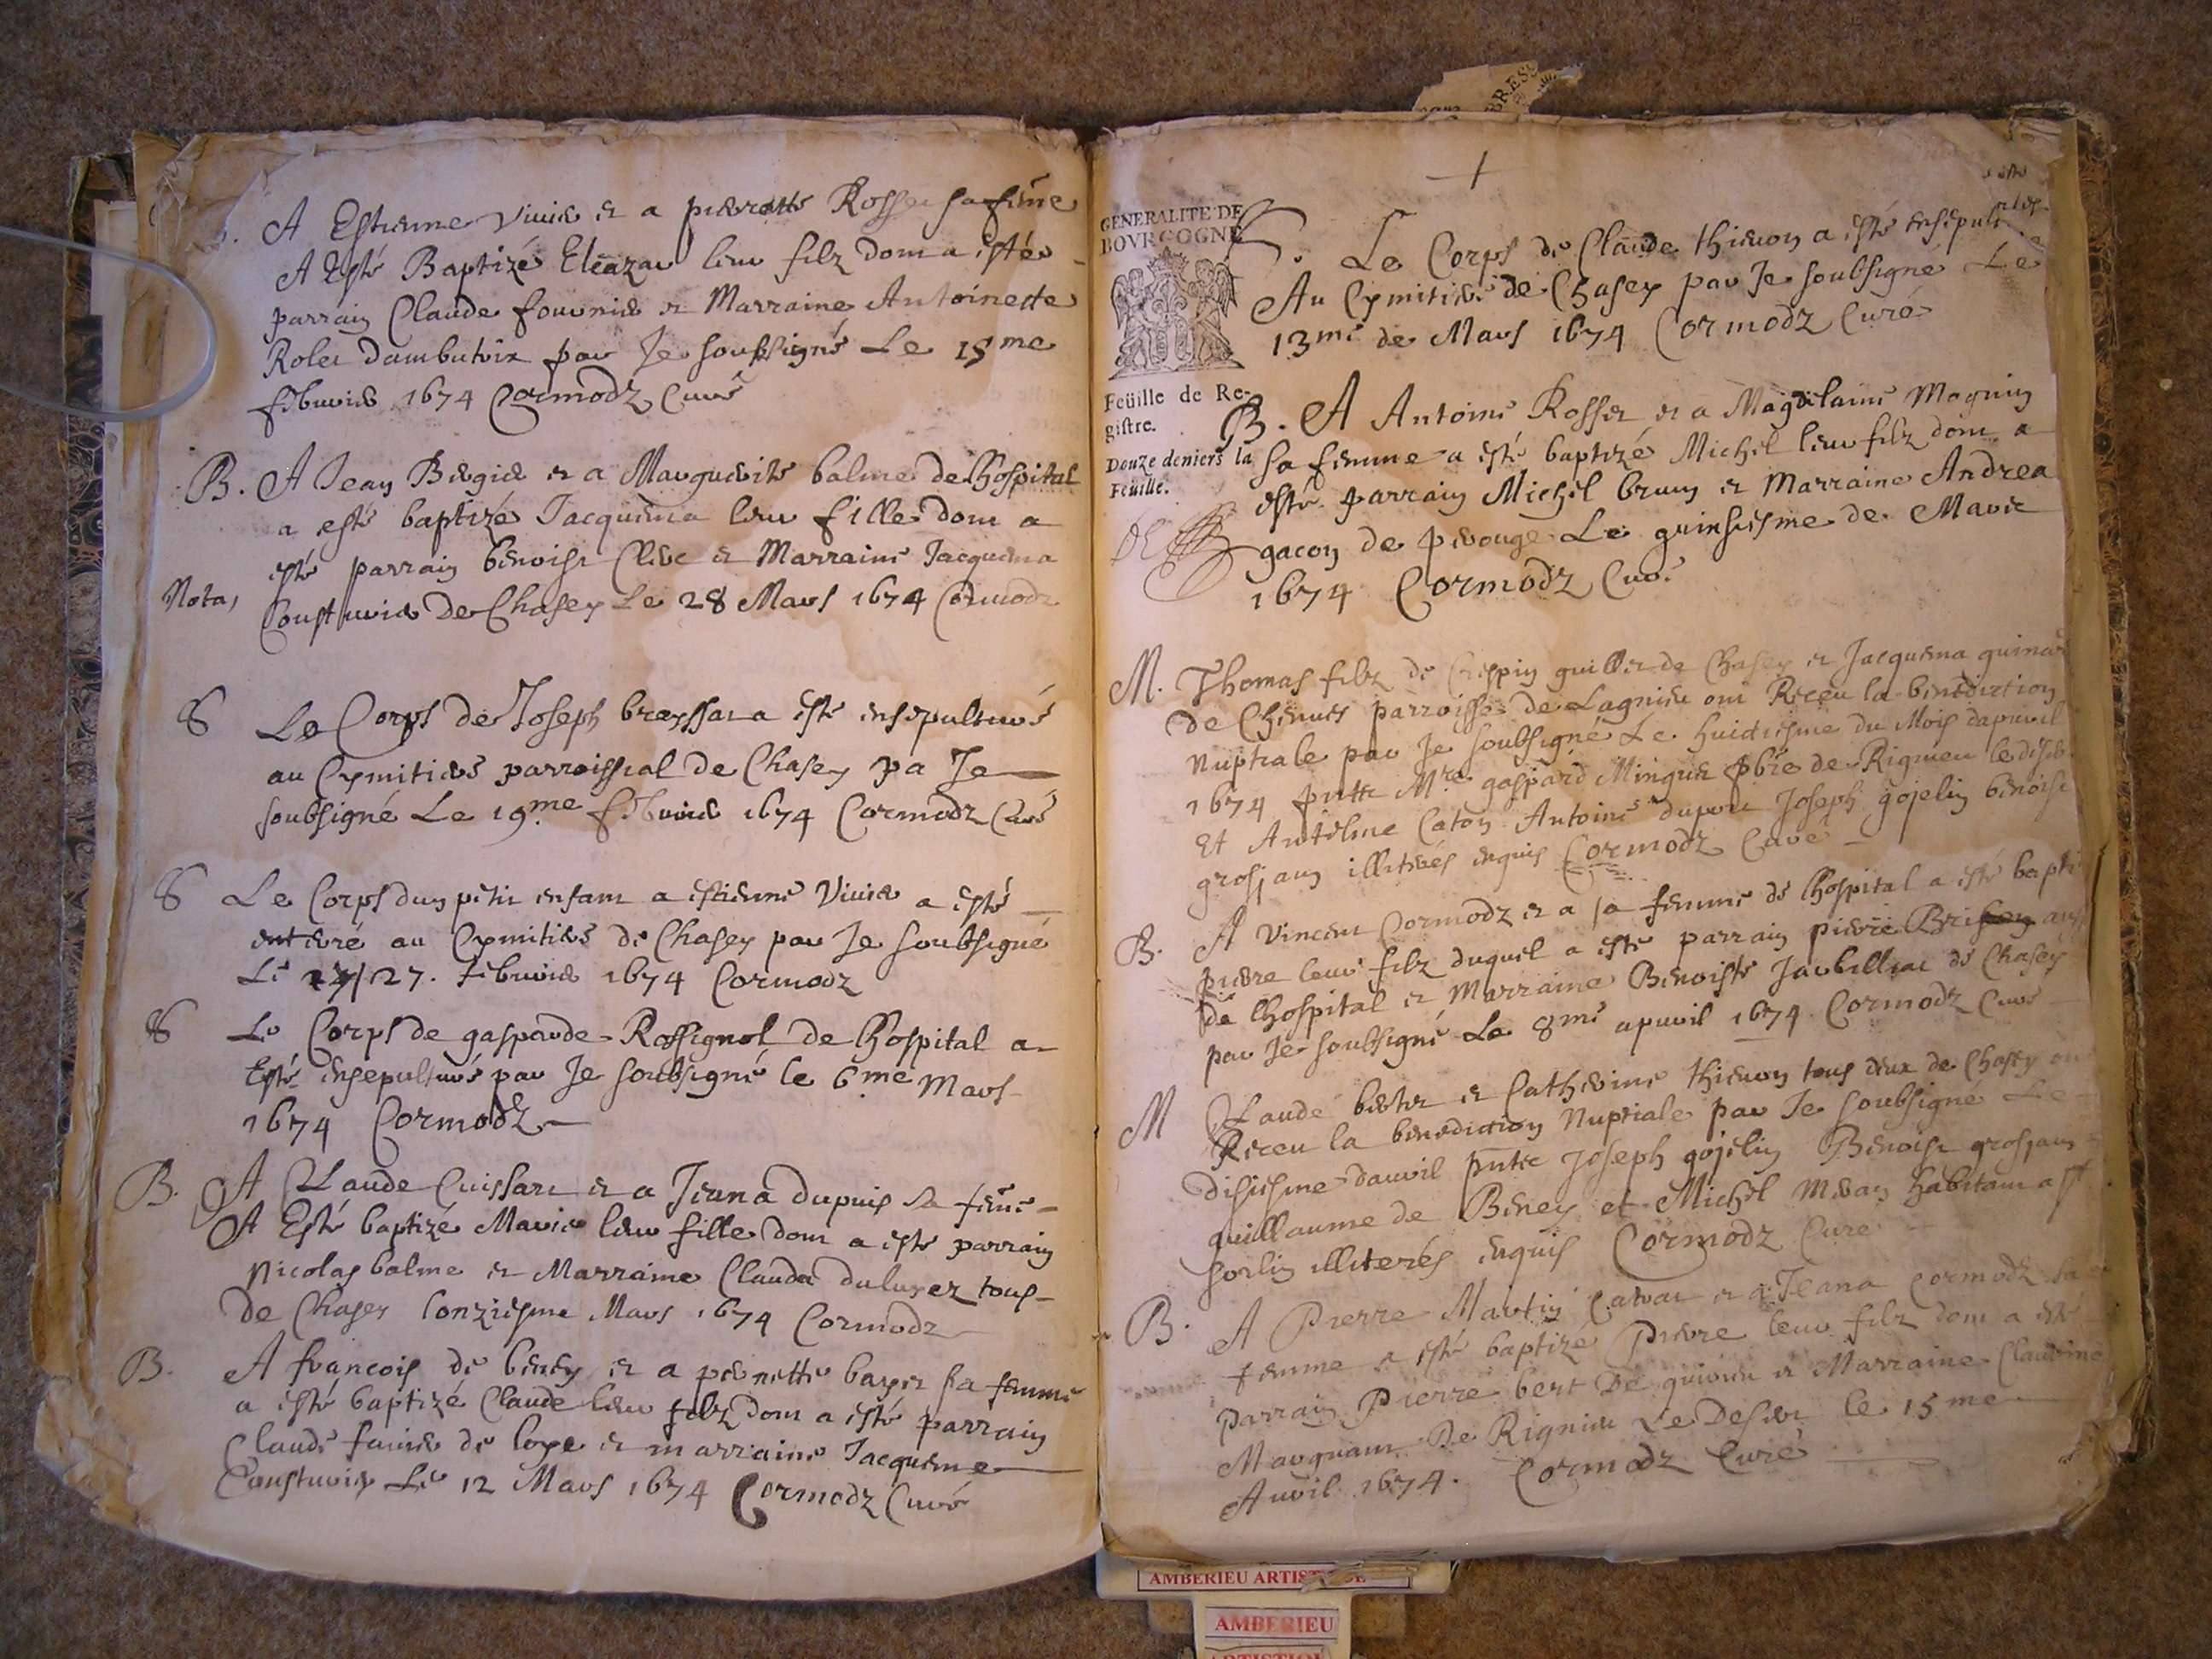 A Estienne Vivier et a pierrette Rosset sa feme
A Esté Baptizé Eleazar leur filz dont a esté
parrain Claude fournier et Marraine Antoinette
Rolet dambutrix par Je soubsigné Le 15me
febvrier 1674 Cormodz Curé
B. A Jean Bergier et a Marguerite balme de Lhospital
a esté baptizé Jacquema leur fille dont a
esté parrain benoist Clerc et Marraine Jacquema
Nota, Cousturier De Chasey Le 28 Mars 1674 Cormodz
S Le Corps de Joseph brayssat a esté ensepulturé
au Cymitiere parroissial de Chasey pa Je
soubsigné Le 19.me febvrier 1674 Cormodz Curé
S Le Corps dun petit enfant a estienne Vivier a esté
enterré au Cymitiere de Chasey par Je soubsigné
Le 27. febvrier 1674 Cormodz
S Le Corps de gasparde Rossignol de Lhospital a
Esté ensepulturé par Je soubsigné le 6.me Mars
1674 Cormodz
B. A Claude Cuissart et a Jeana dupuis sa feme
A Esté baptizé Marie leur fille dont a esté parrain
Nicolas balme et Marraine Clauda tous
De Chasey Lonziesme Mars 1674 Cormodz
B. A francois de beney et a pernette bayet sa femme
a esté baptizé Claude leur filz dont a esté parrain
Claude de loye et marraine Jacqueme
Cousturier Le 12 Mars 1674 Cormodz Curé
GENERALITE DE
BOVRGOGNE
S. Le Corps de Claude thievon a esté ensepult
Au Cymitiere de Chasey par Je soubsigné Le
13me de Mars 1674 Cormodz Curé
Feüille de Re-
gistre.
Douze deniers la
Feüille.
B. A Antoine Rosset et a Magdelaine Magnin
sa femme a esté baptizé Michel leur filz dont a
esté parrain Michel brun et Marraine Andrea
gacon de perouge Le quinsiesme de Mars
1674 Cormodz Curé
M. Thomas filz de Crespin guillet de Chasey et Jacquema
de Chenues parroisse de Lagnieu ont Receu la benediction
Nuptiale par Je soubsigné Le huictiesme du Mois dapuril
1674 pntz Mre gaspard Minguet pbre de Rignieu le desert
Et Antelme Caton Antoine dupont Joseph gojelin benoist
grosjean illiterés enquis Cormodz Curé
B. A Vincent Cormodz et a sa femme de Lhospital a esté bapti
pierre leur filz duquel a esté parrain pierre
de Lhospital et Marraine Benoiste Jarbilliat de Chasey
par Je soubsigné Le 8me apuril 1674 Cormodz Curé
M Claude et Catherine thievon tous deux de Chasey ont
Receu la benediction Nuptiale par Je soubsigné Le
disiesme davril pntz Joseph gojelin Benoist grosjean
guillaume de Beney et Michel habitant a St
sorlin illiterés enquis Cormodz Curé
B. A Pierre Martin et a Jeana Cormodz sa
femme a esté baptizé Pierre leur filz dont a esté
parrain Pierre bert De et Marraine Claudine
Marguant De Rignieu Le Desert le 15me
Avril 1674. Cormodz Curé
AMBERIEU
AMBERIEU